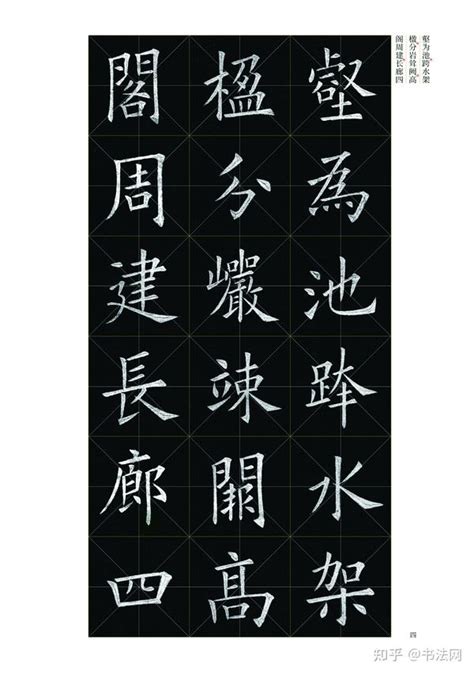 壑为池跨水架
楹分岩耸阙高
阁周建长廊四
壑為池跨水架
楹分巖竦闕高
閣周建長廊四
四
知乎 @书法网